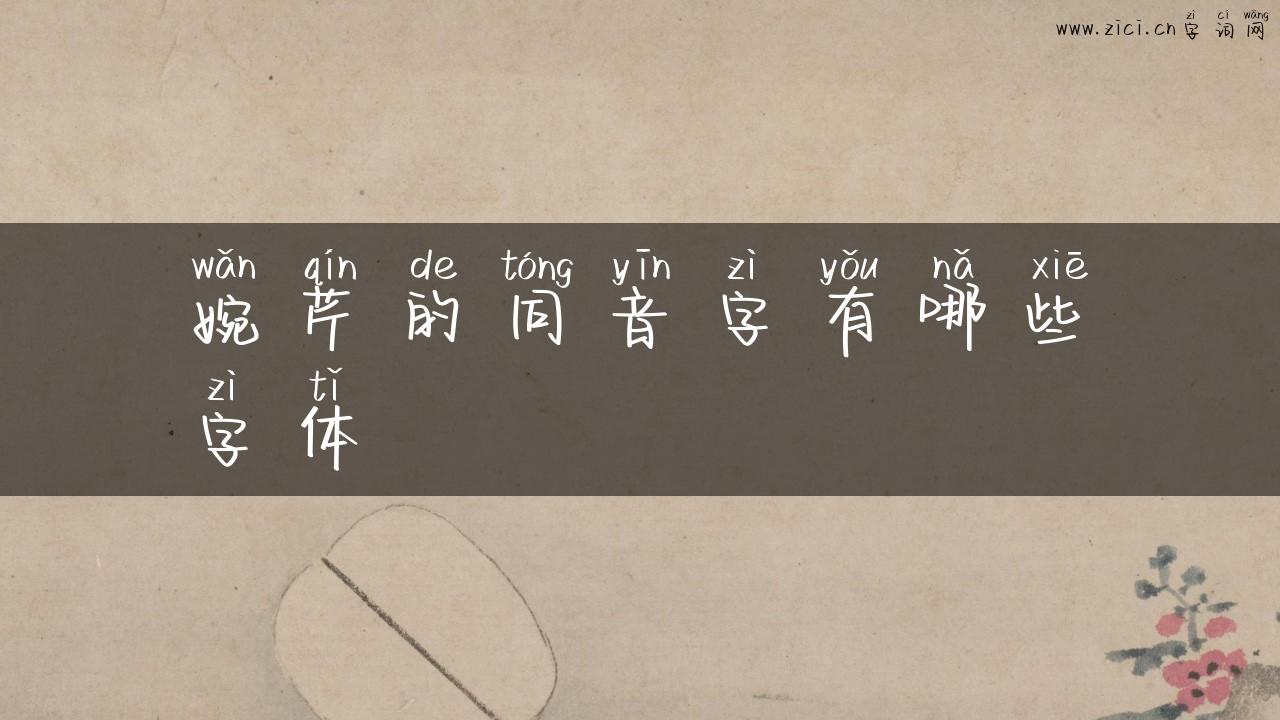 zì cí wǎng
www.zici.cn 字 词 网
wǎn qín de tóng yīn zì yǒu nǎ xiē
婉 芹 的 同 音 字 有 哪 些
zì tǐ
字 体